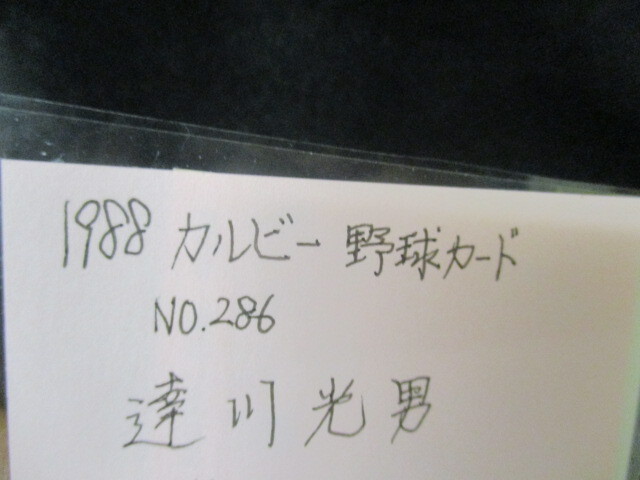 1988 カルビー 野球カード
NO.286
達川光男